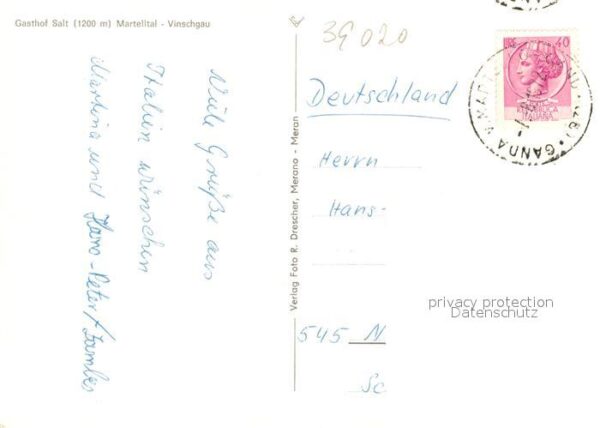 Gasthof Salt (1200 m) Martelltal - Vinschgau
Viele Grüße aus
Italien wünschen
Martina und Hans-Peter
Verlag Foto R. Drescher, Merano - Meran
39020
LIRE 40
REPUBBLICA
ITALIANA
GANDA
Deutschland
Herrn
Hans-
545 N
Sc
privacy protection
Datenschutz